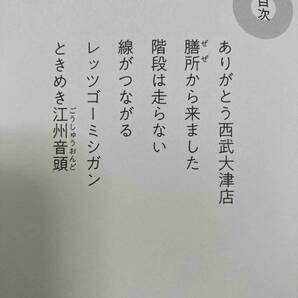 目次
ありがとう西武大津店
膳所から来ました
ぜぜ
階段は走らない
線がつながる
レッツゴーミシガン
ときめき江州音頭
ごうしゅうおんど